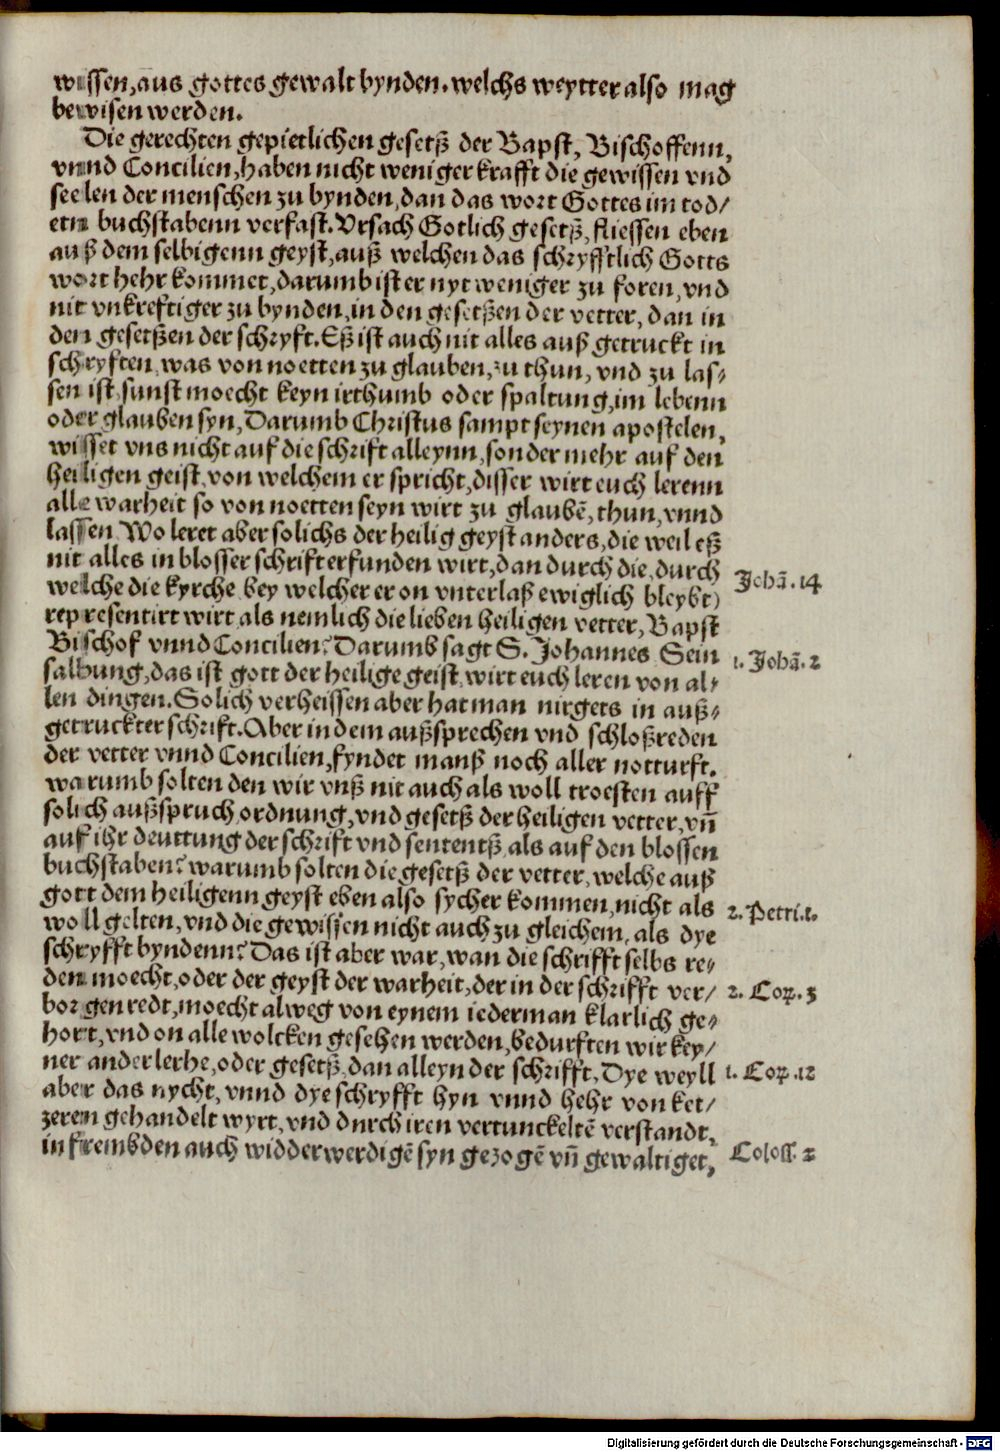 wissen, aus gottes gewalt bynden. welchs weytter also mag
bewisen werden.
Die gerechten gepietlichen gesetß der Bapst, Bischoffenn,
vnnd Concilien, haben nicht weniger krafft die gewissen vnd
seelen der menschen zu bynden, dan das wort Gottes im tod/
etnn buchstabenn verfast. Vrsach Gotlich gesetß, fliessen eben
auß dem selbigenn geyst, auß welchen das schryfftlich Gotts
wort hehr kommet, darumb ist er nyt weniger zu foren, vnd
nit vnkreftiger zu bynden, in den gesetßen der vetter, dan in
den gesetßen der schryft. Eß ist auch nit alles auß getruckt in
schryften, was von noetten zu glauben, zu thun, vnd zu las/
sen ist, sunst moecht keyn irthumb oder spaltung, im lebenn
oder glauben syn, Darumb Christus sampt seynen apostelen,
wisset vns nicht auf die schrift alleynn, sonder mehr auf den
heiligen geist, von welchem er spricht, disser wirt euch lerenn
alle warheit so von noetten seyn wirt zu glaubē, thun, vnnd
lassen. Wo leret aber solichs der heilig geyst anders, die weil eß
nit alles in blosser schrift erfunden wirt, dan durch die, durch
welche die kyrche (bey welcher er on vnterlaß ewiglich bleybt)
representirt wirt, als nemlich die lieben heiligen vetter, Bapst
Bischof vnnd Concilien? Darumb sagt S. Johannes Sein
salbung, das ist gott der heilige geist, wirt euch leren von al/
len dingen. Solich verheissen aber hat man nirgets in auß/
getruckter schrift. Aber in dem außsprechen vnd schloßreden
der vetter vnnd Concilien, fyndet manß noch aller notturft.
warumb solten den wir vnß nit auch als woll troesten auff
solich außspruch, ordnung, vnd gesetß der heiligen vetter, vñ
auf ihr deuttung der schrift vnd sententß, als auf den blossen
buchstaben? warumb solten die gesetß der vetter, welche auß
gott dem heiligenn geyst eben also sycher kommen, nicht als
woll gelten, vnd die gewissen nicht auch zu gleichem, als dye
schryfft byndenn? Das ist aber war, wan die schrifft selbs re/
den moecht, oder der geyst der warheit, der in der schrifft ver/
borgen redt, moecht alweg von eynem iederman klarlich ge/
hort, vnd on alle wolcken gesehen werden, bedurften wir key/
ner ander lerhe, oder gesetß, dan alleyn der schrifft, Dye weyll
aber das nycht, vnnd dye schryfft hyn vnnd hehr von ket/
zerenn gehandelt wyrt, vnd durch iren vertunckeltē verstandt,
in frembden auch widderwerdigē syn gezogē vñ gewaltiget,
Johā. 14
1. Johā. 2
2. Petri. 1.
2. Cor. 3
1. Cor. 12
Coloss. 2
Digitalisierung gefördert durch die Deutsche Forschungsgemeinschaft - DFG